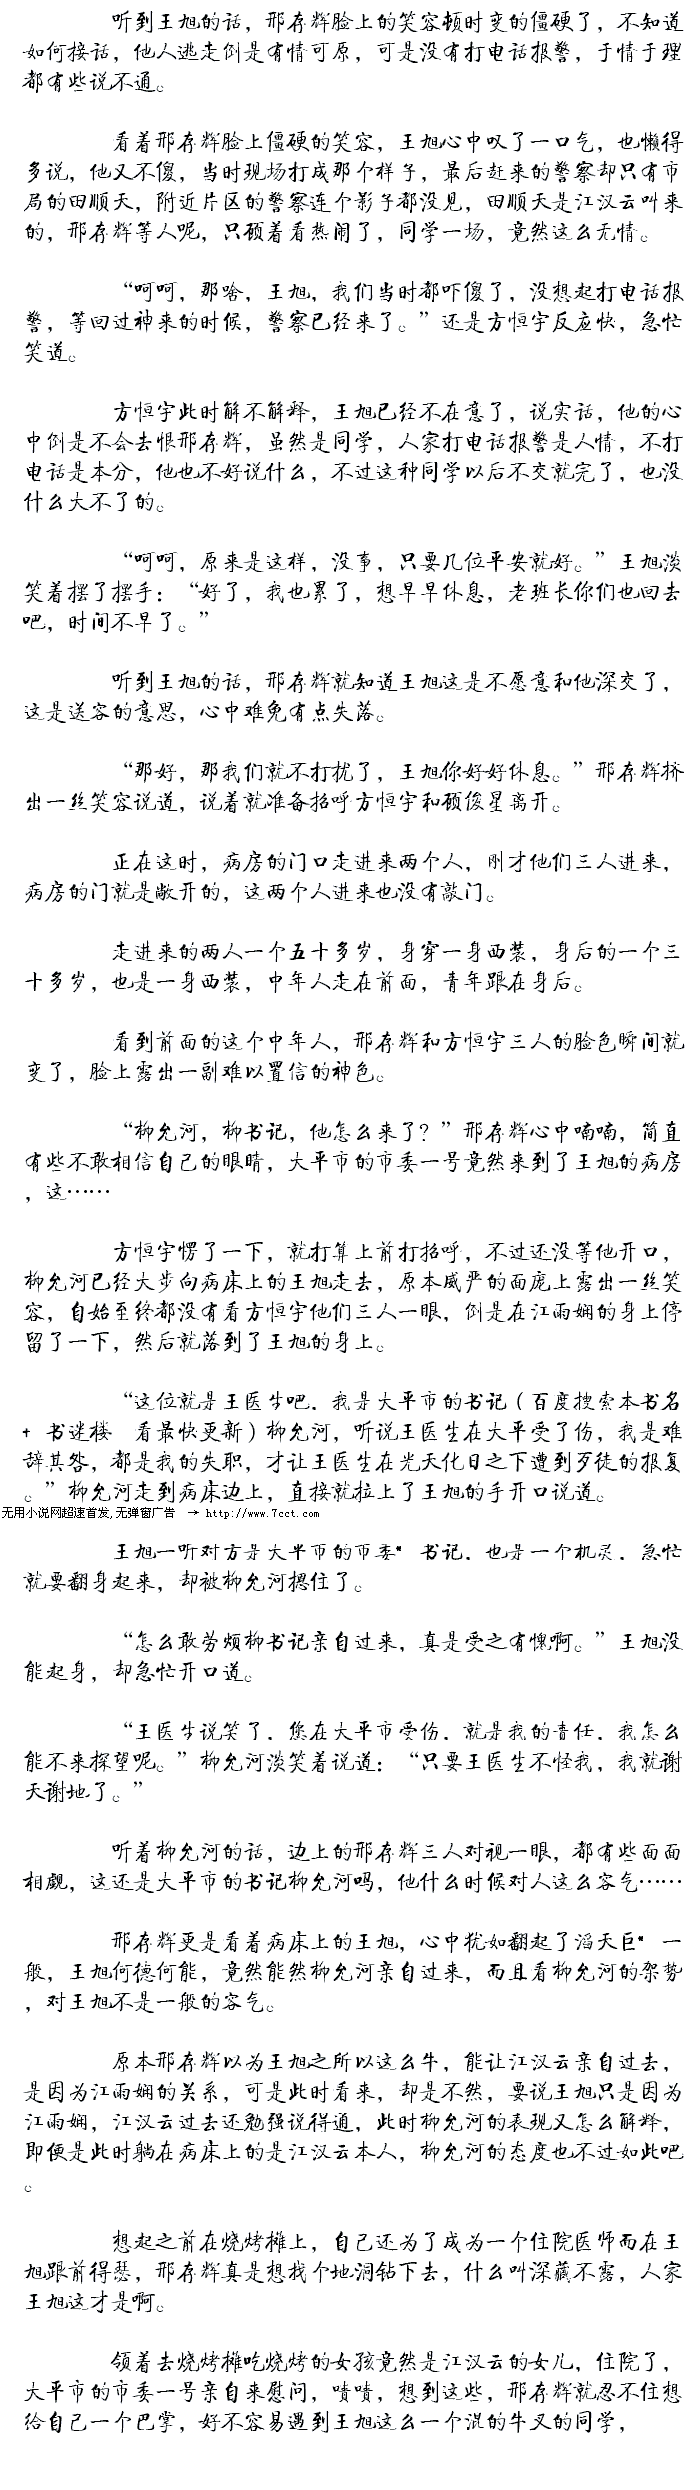 听到王旭的话，邢存辉脸上的笑容顿时变的僵硬了，不知道
如何接话，他人逃走倒是有情可原，可是没有打电话报警，于情于理
都有些说不通。
看着邢存辉脸上僵硬的笑容，王旭心中叹了一口气，也懒得
多说，他又不傻，当时现场打成那个样子，最后赶来的警察却只有市
局的田顺天，附近片区的警察连个影子都没见，田顺天是江汉云叫来
的，邢存辉等人呢，只顾着看热闹了，同学一场，竟然这么无情。
“呵呵，那啥，王旭，我们当时都吓傻了，没想起打电话报
警，等回过神来的时候，警察已经来了。”还是方恒宇反应快，急忙
笑道。
方恒宇此时解不解释，王旭已经不在意了，说实话，他的心
中倒是不会去恨邢存辉，虽然是同学，人家打电话报警是人情，不打
电话是本分，他也不好说什么，不过这种同学以后不交就完了，也没
什么大不了的。
“呵呵，原来是这样，没事，只要几位平安就好。”王旭淡
笑着摆了摆手：“好了，我也累了，想早早休息，老班长你们也回去
吧，时间不早了。”
听到王旭的话，邢存辉就知道王旭这是不愿意和他深交了，
这是送客的意思，心中难免有点失落。
“那好，那我们就不打扰了，王旭你好好休息。”邢存辉挤
出一丝笑容说道，说着就准备招呼方恒宇和顾俊星离开。
正在这时，病房的门口走进来两个人，刚才他们三人进来，
病房的门就是敞开的，这两个人进来也没有敲门。
走进来的两人一个五十多岁，身穿一身西装，身后的一个三
十多岁，也是一身西装，中年人走在前面，青年跟在身后。
看到前面的这个中年人，邢存辉和方恒宇三人的脸色瞬间就
变了，脸上露出一副难以置信的神色。
“柳允河，柳书记，他怎么来了？”邢存辉心中喃喃，简直
有些不敢相信自己的眼睛，大平市的市委一号竟然来到了王旭的病房
，这……
方恒宇愣了一下，就打算上前打招呼，不过还没等他开口，
柳允河已经大步向病床上的王旭走去，原本威严的面庞上露出一丝笑
容，自始至终都没有看方恒宇他们三人一眼，倒是在江雨娴的身上停
留了一下，然后就落到了王旭的身上。
“这位就是王医生吧，我是大平市的书记（百度搜索本书名
+ 书迷楼 看最快更新）柳允河，听说王医生在大平受了伤，我是难
辞其咎，都是我的失职，才让王医生在光天化日之下遭到歹徒的报复
。”柳允河走到病床边上，直接就拉上了王旭的手开口说道。
无用小说网超速首发,无弹窗广告 → http://www.7cct.com
王旭一听对方是大平市的市委* 书记，也是一个机灵，急忙
就要翻身起来，却被柳允河摁住了。
“怎么敢劳烦柳书记亲自过来，真是受之有愧啊。”王旭没
能起身，却急忙开口道。
“王医生说笑了，您在大平市受伤，就是我的责任，我怎么
能不来探望呢。”柳允河淡笑着说道：“只要王医生不怪我，我就谢
天谢地了。”
听着柳允河的话，边上的邢存辉三人对视一眼，都有些面面
相觑，这还是大平市的书记柳允河吗，他什么时候对人这么客气……
邢存辉更是看着病床上的王旭，心中犹如翻起了滔天巨* 一
般，王旭何德何能，竟然能然柳允河亲自过来，而且看柳允河的架势
，对王旭不是一般的客气。
原本邢存辉以为王旭之所以这么牛，能让江汉云亲自过去，
是因为江雨娴的关系，可是此时看来，却是不然，要说王旭只是因为
江雨娴，江汉云过去还勉强说得通，此时柳允河的表现又怎么解释，
即便是此时躺在病床上的是江汉云本人，柳允河的态度也不过如此吧
。
想起之前在烧烤摊上，自己还为了成为一个住院医师而在王
旭跟前得瑟，邢存辉真是想找个地洞钻下去，什么叫深藏不露，人家
王旭这才是啊。
领着去烧烤摊吃烧烤的女孩竟然是江汉云的女儿，住院了，
大平市的市委一号亲自来慰问，啧啧，想到这些，邢存辉就忍不住想
给自己一个巴掌，好不容易遇到王旭这么一个混的牛叉的同学，